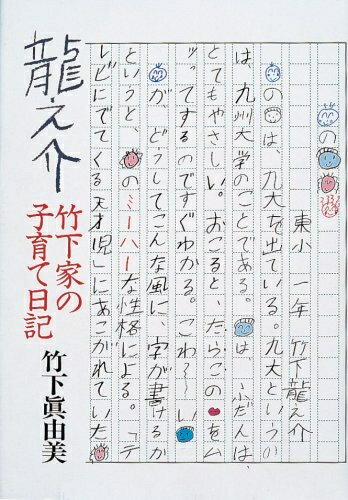 龍之介
竹下家の
子育て日記
竹下眞由美
の
東小 一年 竹下龍之介
の は、九大を出ている。九大というの
は、九州大学のことである。 は、ふだんは、
とてもやさしい。おこると、たらこの をム
ッてするのですぐわかる。こわ〜い
が、どうしてこんな風に、字が書けるか
というと、 のミーハーな性格による。「テ
レビにでてくる天才児」にあこがれていた